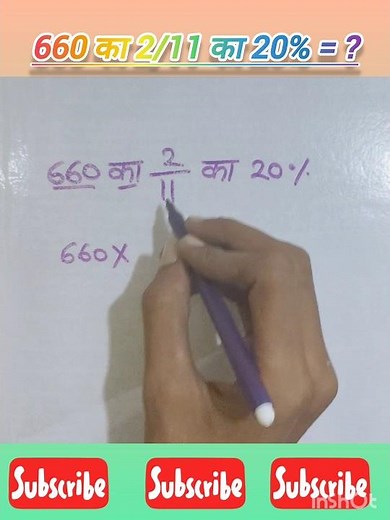 660 का 2/11 का 20% = ?
660 का 2/11 का 20%
660 X
Subscribe Subscribe Subscribe
InShOt